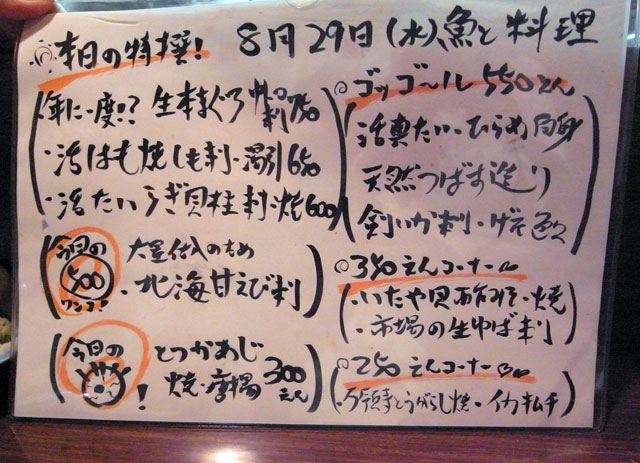 本日の特撰! 8月29日(水)魚と料理
年に一度!? 生本まぐろ 刺 780
・活はも焼しも刺・湯引 650
・活たいらぎ貝柱刺・焼 600
今日の 500 ワンコ!
大量仕入のため
・北海甘えび刺
今日の !
とつかあじ
焼・ 300えん
ゴッゴール 550えん
活真たい・ひらめ
天然つばす造り
剣いか刺・げそ
350えんコーナー
・いたや貝酢みそ・焼
・市場の生ゆば刺
250えんコーナー
・万願寺とうがらし焼・イカキムチ